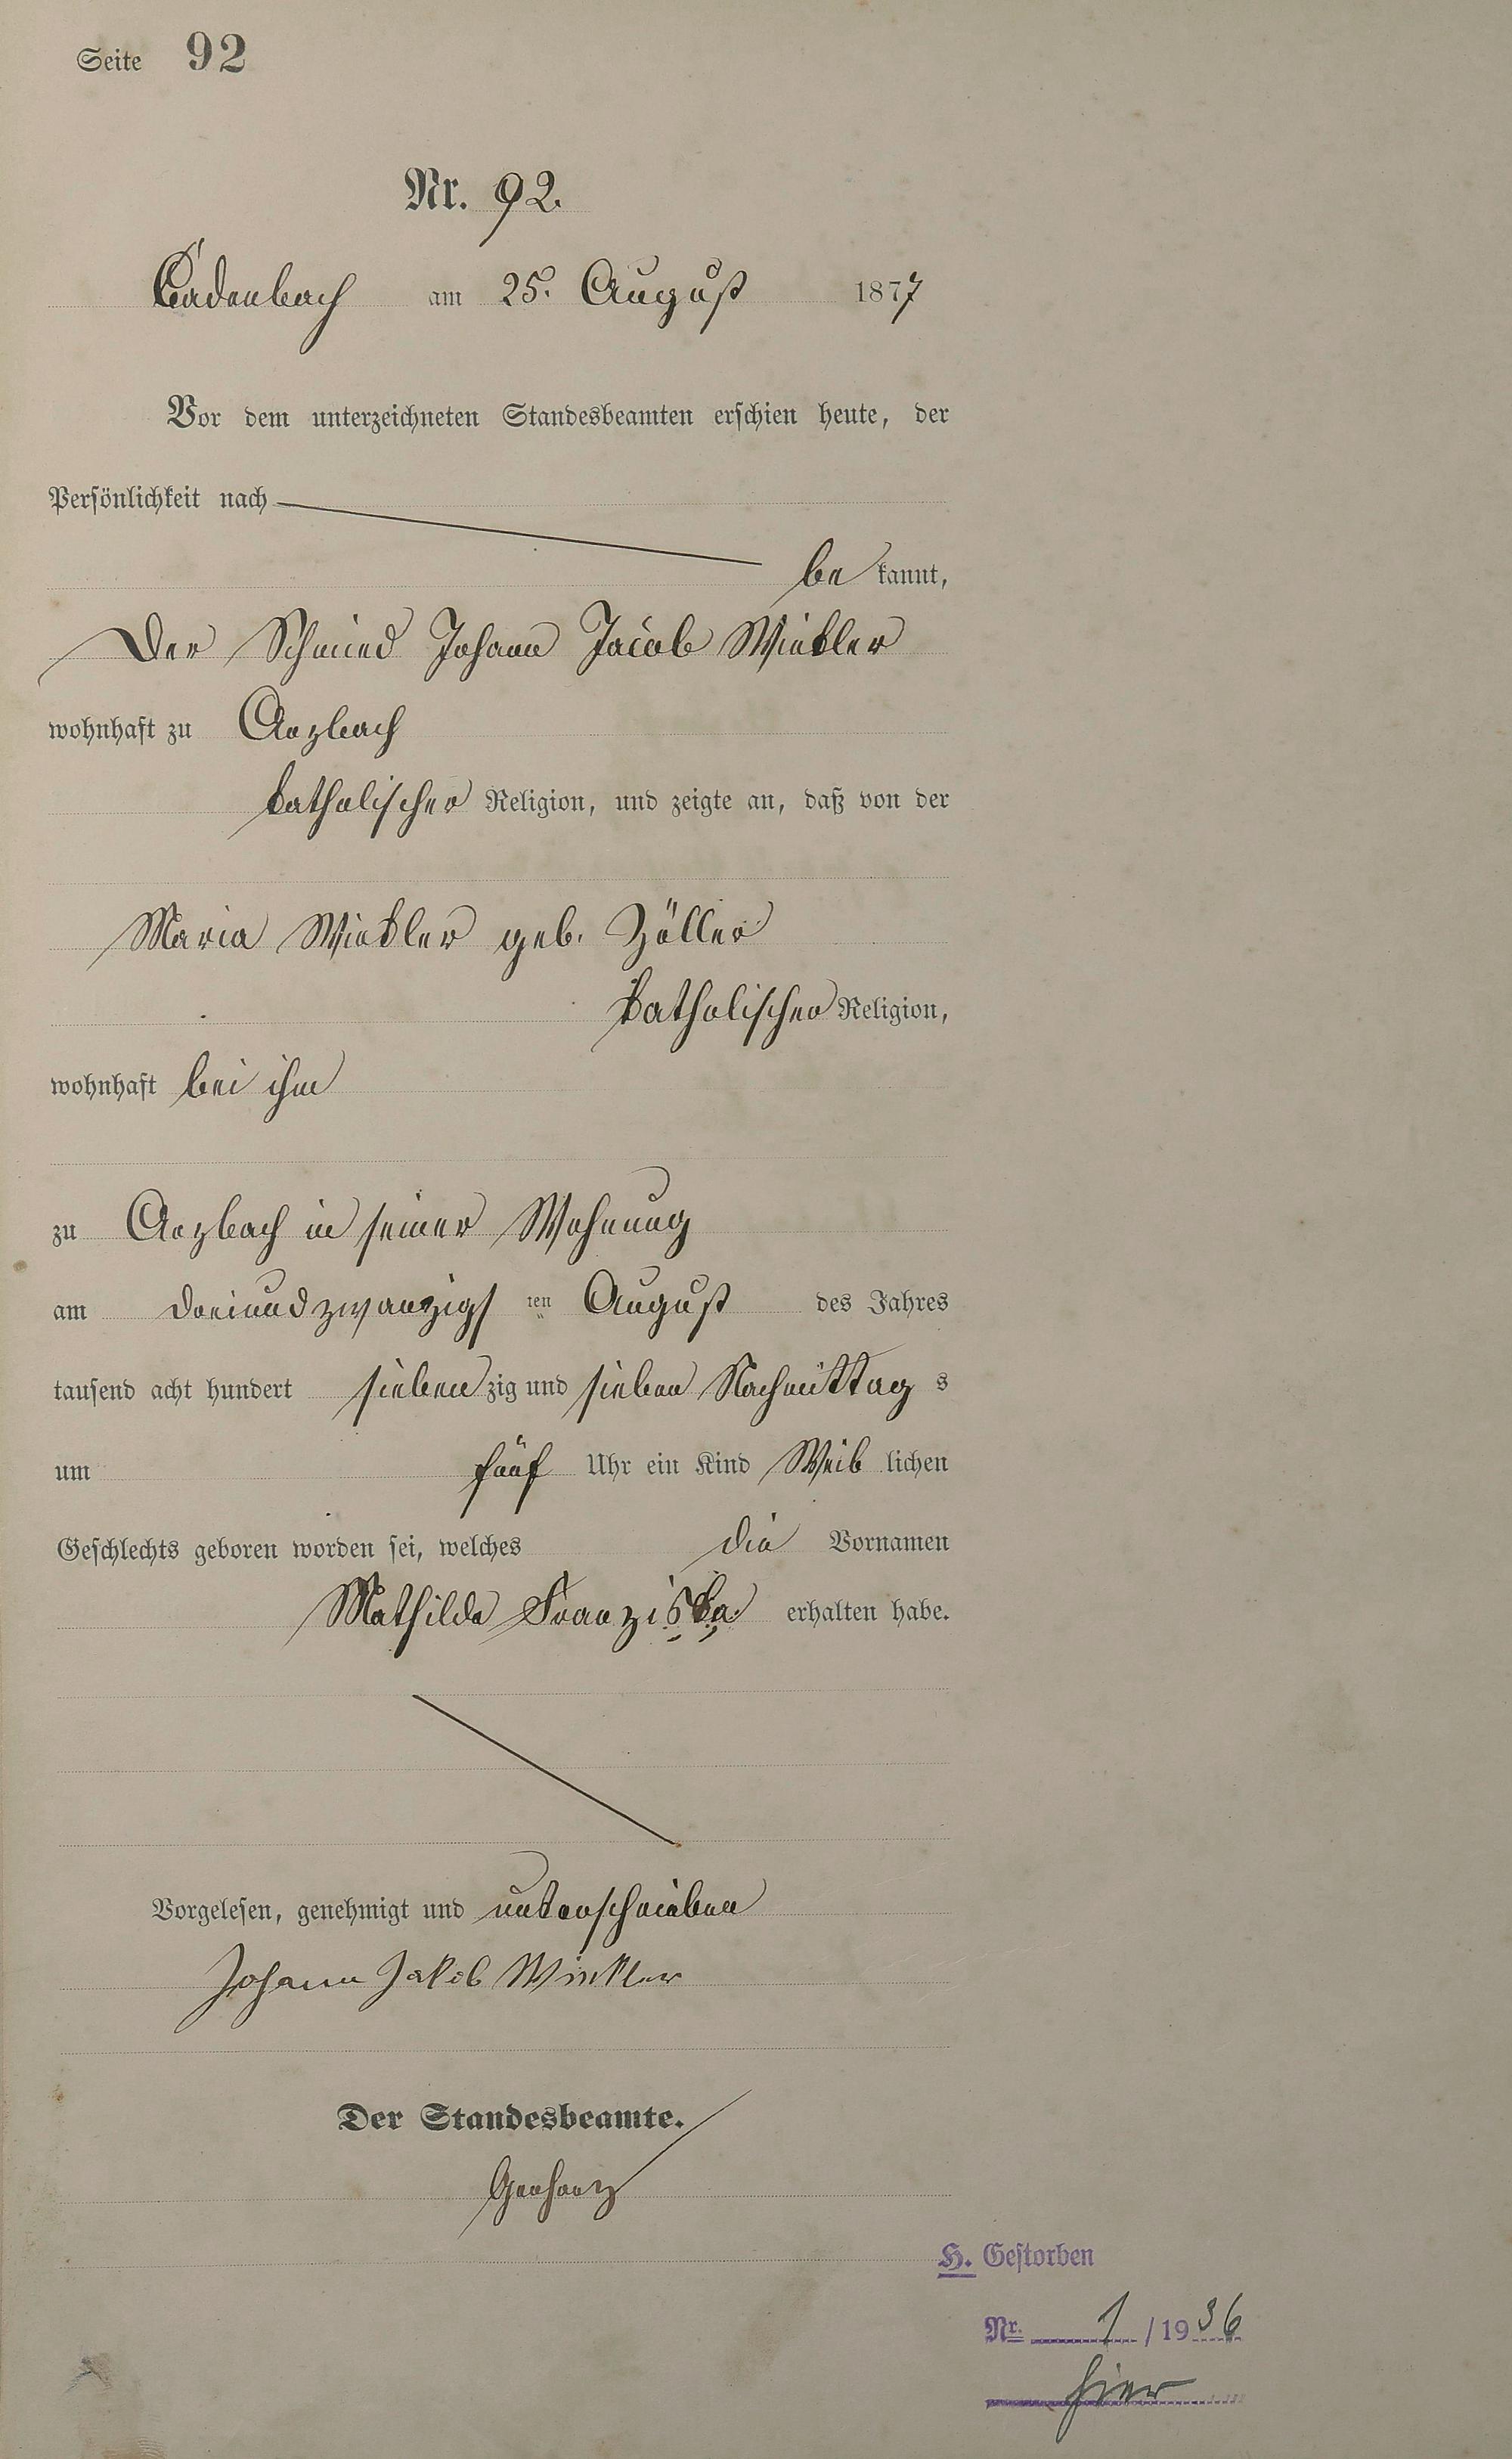 Seite 92
Nr. 92.
Cadenbach am 25. August 1877
Vor dem unterzeichneten Standesbeamten erschien heute, der
Persönlichkeit nach
be kannt,
Der Schmied Johann Jacob Winkler
wohnhaft zu Arzbach
katholischer Religion, und zeigte an, daß von der
Maria Winkler geb. Zöller
katholischer Religion,
wohnhaft bei ihm
zu Arzbach in seiner Wohnung
am dreiundzwanzigs ten August des Jahres
tausend acht hundert siebenzig und sieben Nachmittag s
um fünf Uhr ein Kind Weib lichen
Geschlechts geboren worden sei, welches die Vornamen
Mathilde Franziska erhalten habe.
Vorgelesen, genehmigt und unterschrieben
Johann Jakob Winkler
Der Standesbeamte.
Gerharz
H. Gestorben
Nr. 1 / 1936
hier